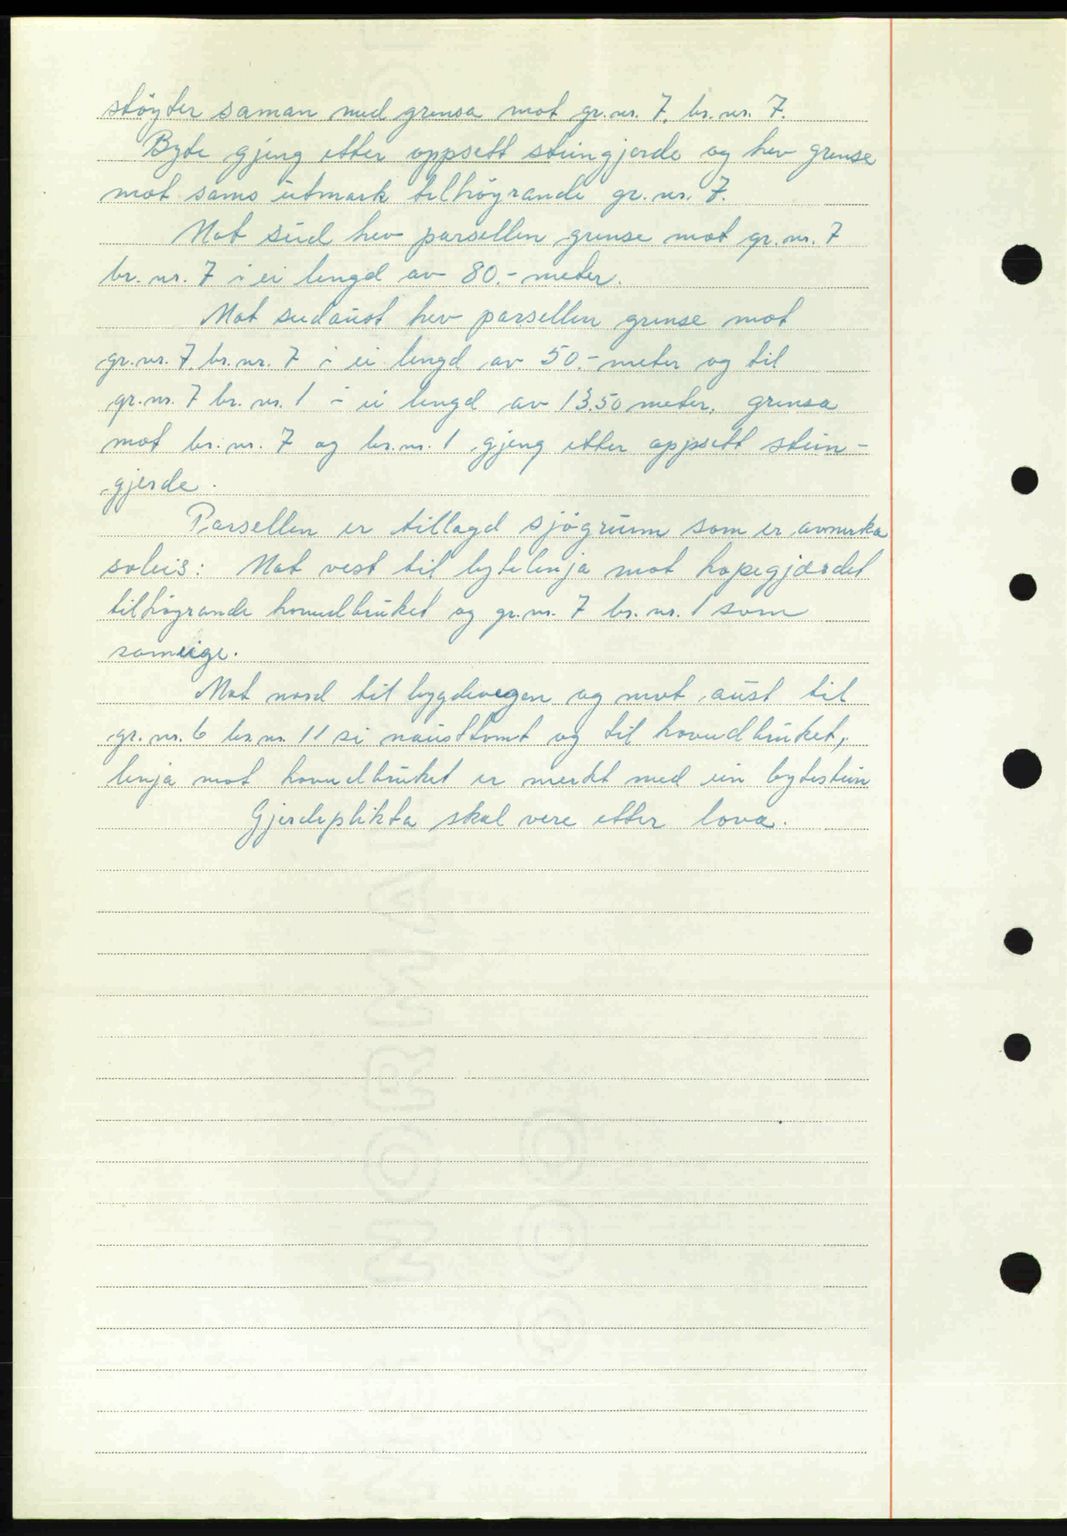 støyter saman med grensa mot gr. nr. 7. br. nr. 7.
Byte gjeng etter oppsett steingjerde og hev grense
mot sams utmark tilhøyrande gr. nr. 7.
Mot sud hev parsellen grense mot gr. nr. 7
br. nr. 7 i ei lengd av 80.- meter.
Mot sudaust hev parsellen grense mot
gr. nr. 7. br. nr. 7 i ei lengd av 50.- meter og til
gr. nr. 7 br. nr. 1 i ei lengd av 13.50 meter. grensa
mot br. nr. 7 og br. nr. 1 gjeng etter oppsett stein-
gjerde.
Parsellen er tillagd sjøgrunn som er avmerka
soleis: Mot vest til bytelinja mot hopegjærdet
tilhøyrande hovudbruket og gr. nr. 7 br. nr. 1 som
sameige.
Mot nord til bygdevegen og mot aust til
gr. nr. 6 br. nr. 11 si nausttomt og til hovudbruket,
linja mot hovudbruket er merkt med ein bytestein
Gjerdeplikta skal vere etter lova.